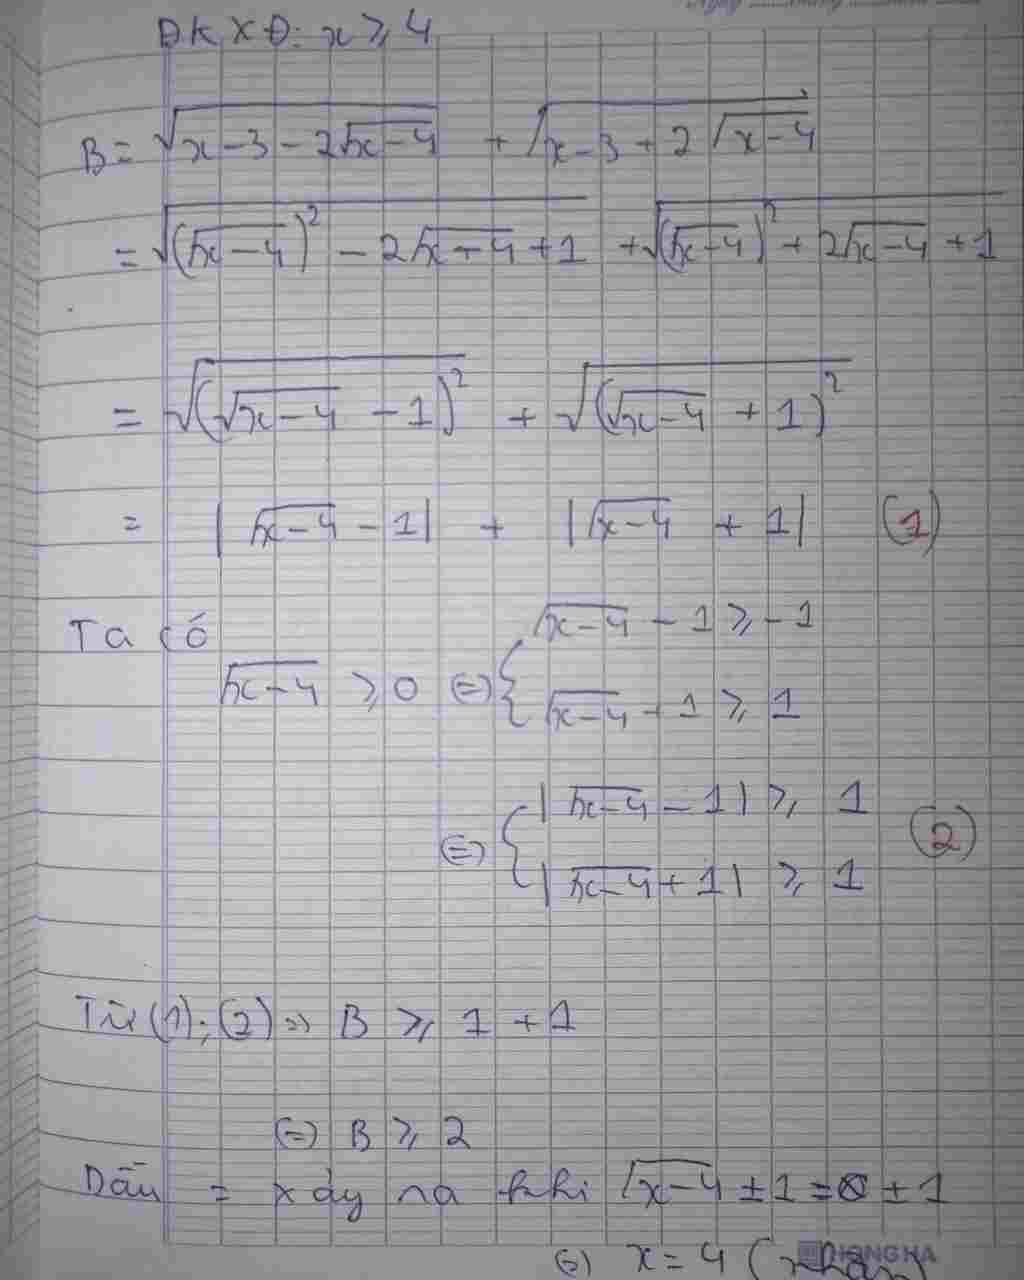 ĐKXĐ: x ⩾ 4
B = √(x-3-2√(x-4)) + √(x-3+2√(x-4))
= √((√(x-4))² - 2√(x-4) + 1) + √((√(x-4))² + 2√(x-4) + 1)
= √((√(x-4) - 1)²) + √((√(x-4) + 1)²)
= |√(x-4) - 1| + |√(x-4) + 1| (1)
Ta có
√(x-4) ⩾ 0 ⇔ { √(x-4) - 1 ⩾ -1
√(x-4) + 1 ⩾ 1
⇔ { |√(x-4) - 1| ⩾ 1
|√(x-4) + 1| ⩾ 1 (2)
Từ (1); (2) ⇒ B ⩾ 1 + 1
⇔ B ⩾ 2
Dấu = xảy ra khi √(x-4) ± 1 = ± 1
⇔ x = 4 (nhận)
HONG HA